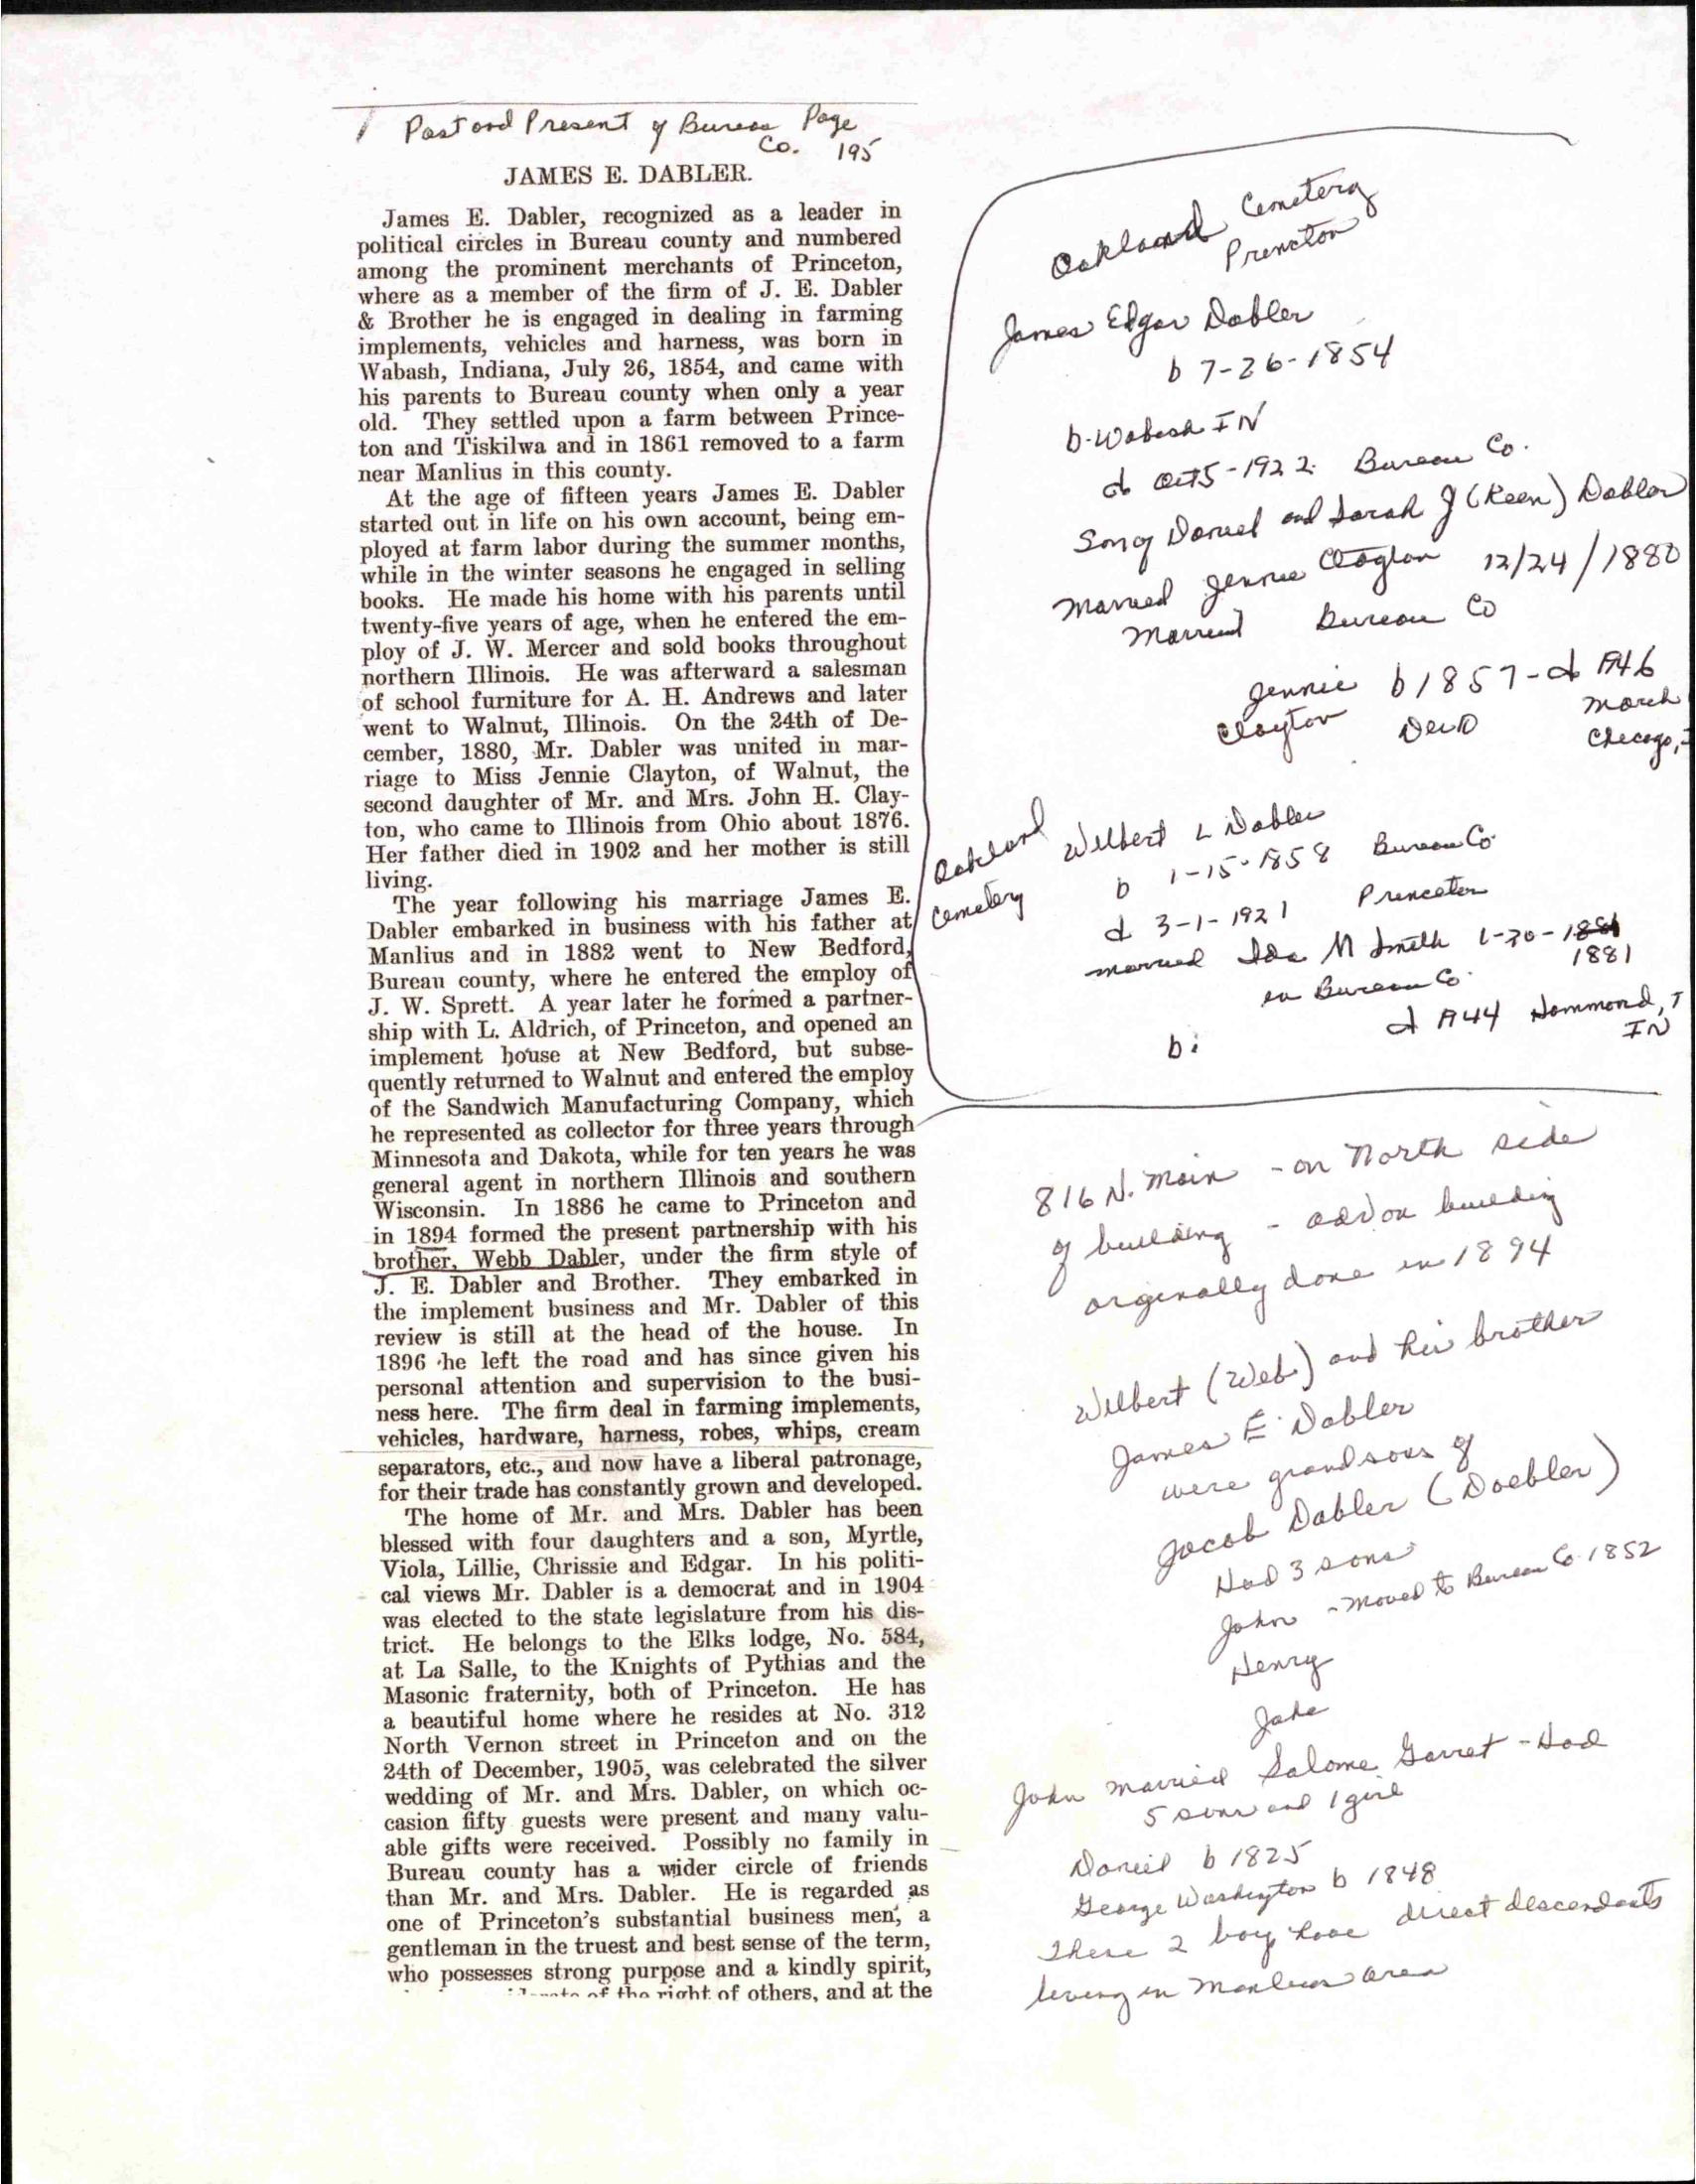 Past and Present of Bureau Page
Co. 195
JAMES E. DABLER.
James E. Dabler, recognized as a leader in
political circles in Bureau county and numbered
among the prominent merchants of Princeton,
where as a member of the firm of J. E. Dabler
& Brother he is engaged in dealing in farming
implements, vehicles and harness, was born in
Wabash, Indiana, July 26, 1854, and came with
his parents to Bureau county when only a year
old. They settled upon a farm between Prince-
ton and Tiskilwa and in 1861 removed to a farm
near Manlius in this county.
At the age of fifteen years James E. Dabler
started out in life on his own account, being em-
ployed at farm labor during the summer months,
while in the winter seasons he engaged in selling
books. He made his home with his parents until
twenty-five years of age, when he entered the em-
ploy of J. W. Mercer and sold books throughout
northern Illinois. He was afterward a salesman
of school furniture for A. H. Andrews and later
went to Walnut, Illinois. On the 24th of De-
cember, 1880, Mr. Dabler was united in mar-
riage to Miss Jennie Clayton, of Walnut, the
second daughter of Mr. and Mrs. John H. Clay-
ton, who came to Illinois from Ohio about 1876.
Her father died in 1902 and her mother is still
living.
The year following his marriage James E.
Dabler embarked in business with his father at
Manlius and in 1882 went to New Bedford,
Bureau county, where he entered the employ of
J. W. Sprett. A year later he formed a partner-
ship with L. Aldrich, of Princeton, and opened an
implement house at New Bedford, but subse-
quently returned to Walnut and entered the employ
of the Sandwich Manufacturing Company, which
he represented as collector for three years through
Minnesota and Dakota, while for ten years he was
general agent in northern Illinois and southern
Wisconsin. In 1886 he came to Princeton and
in 1894 formed the present partnership with his
brother, Webb Dabler, under the firm style of
J. E. Dabler and Brother. They embarked in
the implement business and Mr. Dabler of this
review is still at the head of the house. In
1896 he left the road and has since given his
personal attention and supervision to the busi-
ness here. The firm deal in farming implements,
vehicles, hardware, harness, robes, whips, cream
separators, etc., and now have a liberal patronage,
for their trade has constantly grown and developed.
The home of Mr. and Mrs. Dabler has been
blessed with four daughters and a son, Myrtle,
Viola, Lillie, Chrissie and Edgar. In his politi-
cal views Mr. Dabler is a democrat and in 1904
was elected to the state legislature from his dis-
trict. He belongs to the Elks lodge, No. 584,
at La Salle, to the Knights of Pythias and the
Masonic fraternity, both of Princeton. He has
a beautiful home where he resides at No. 312
North Vernon street in Princeton and on the
24th of December, 1905, was celebrated the silver
wedding of Mr. and Mrs. Dabler, on which oc-
casion fifty guests were present and many valu-
able gifts were received. Possibly no family in
Bureau county has a wider circle of friends
than Mr. and Mrs. Dabler. He is regarded as
one of Princeton's substantial business men, a
gentleman in the truest and best sense of the term,
who possesses strong purpose and a kindly spirit,
of the right of others, and at the
Oakland Cemetery
Princton
James Edgar Dabler
b 7-26-1854
b. Wabash IN
d Oct 5-1922. Bureau Co.
Son of Daniel and Sarah J (Keen) Dabler
Married Jennie Clayton 12/24/1880
Married Bureau Co
Jennie b 1857 - d 1946
Clayton March
Chicago,
Oakland Cemetery
Wilbert L Dabler
b 1-15-1858 Bureau Co.
d 3-1-1921 Princeton
married Ida M Smith 1-30-1881
1881
in Bureau Co.
d 1944 Hammond,
IN
b:
816 N. Main - on North side
of building - add on building
orginally done in 1894
Wilbert (Web) and his brother
James E. Dabler
were grandsons of
Jacob Dabler (Doebler)
Had 3 sons
John - moved to Bureau Co. 1852
Henry
Jake
John married Salome Garret - Had
5 sons and 1 girl
Daniel b 1825
George Washington b 1848
These 2 boys have direct descendants
living in Manlius area